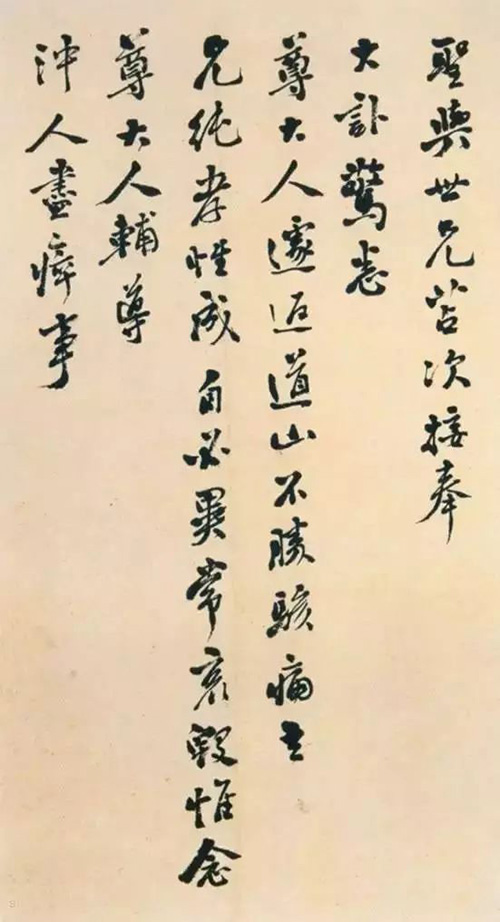 聖輿世兄苫次接奉
大訃驚悉
尊大人遽返道山不勝駭痛吾
兄純孝性成自必異常哀毀惟念
尊大人輔導
沖人盡瘁事